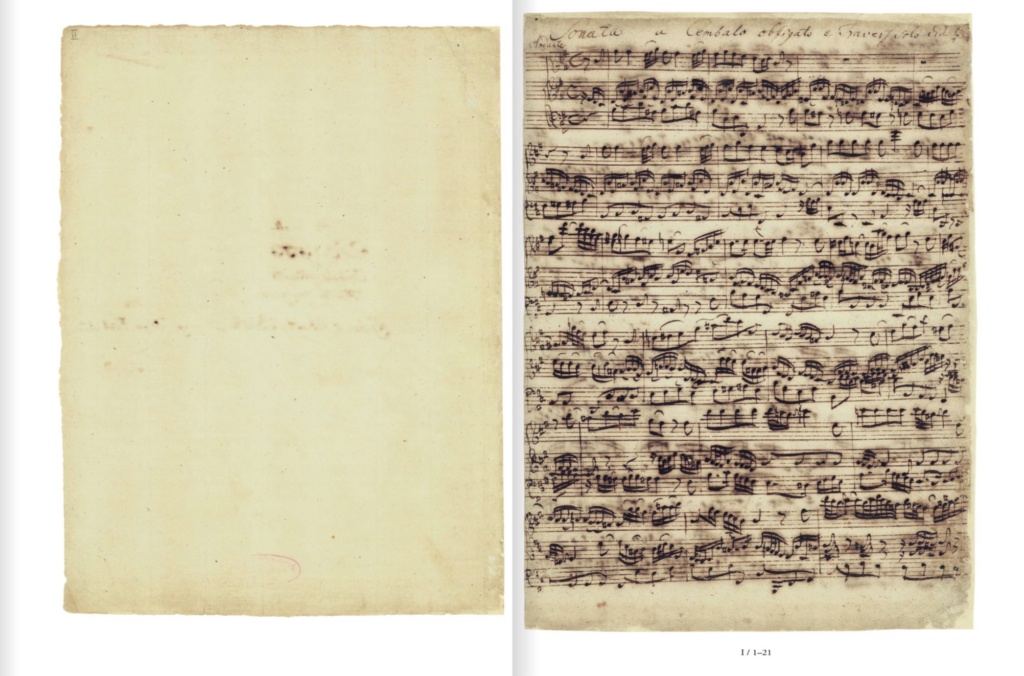 Sonata a Cembalo obligato e Travers. solo di
Andante
I / 1–21